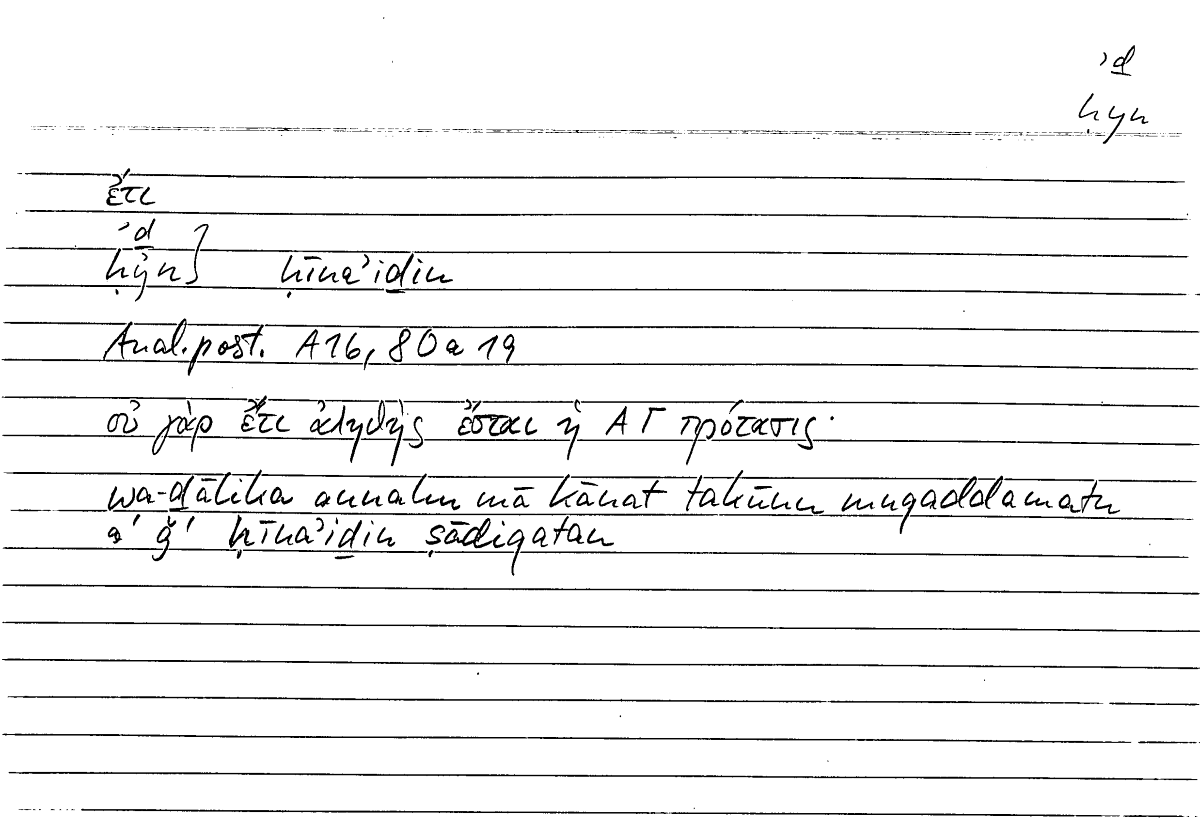 ʾḏ
ḥyn
ἔτι
ʾḏ
ḥyn } ḥīnaʾiḏin
Anal. post. A 16, 80 a 19
οὐ γὰρ ἔτι ἀληθὴς ἔσται ἡ Α Γ πρότασις·
wa-ḏālika annahu mā kānat takūnu muqaddamatu
a′ ǧ′ ḥīnaʾiḏin ṣādiqatan